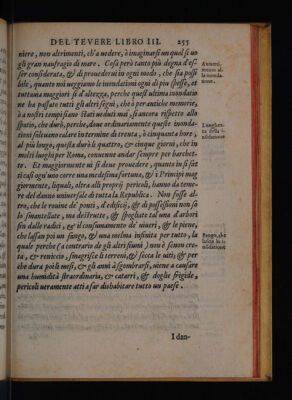 DEL TEVERE LIBRO III. 255
niere, non altrimenti, ch'a uedere, ò imaginarsi un qual si uo
gli gran naufragio di mare. Cosa però tanto più degna d'es-
ser considerata, & di prouederui in ogni modo, che sia possi
bile, quanto noi ueggiamo le inondationi ogni dì più spesse, &
tuttauia maggiori sì d'altezza, perche quest'ultima inondatio
ne ha passato tutti gli altri segni, che à per antiche memorie,
à à nostri tempi siano stati ueduti mai, sì ancora rispetto allo
spatio, che durò, perche, doue ordinariamente queste inonda-
tioni soleuano calare in termine di trenta, ò cinquanta hore,
al piu lungo, questa durò quattro, & cinque giorni, che in
molti luoghi per Roma, conuenne andar sempre per barchet-
te. Et maggiormente ui si deue prouedere, quanto in sì fat
ti casi ogn'uno corre una medesima fortuna, & i Principi mag
giormente, liquali, oltra alli proprij pericoli, hanno da teme-
re del danno uniuersale di tutta la Republica. Non fosse al-
tro, che le rouine de' ponti, d'edificij, & di possessioni non so
lo smantellate, ma destrutte, & spogliate tal una d'arbori
sin dalle radici, & il consumamento de' uiueri, & le piene,
che lassan poi un fango, & una melma infinita per tutto, la
quale perche (a contrario de gli altri fiumi) non è senon cre-
ta, & reniccio, smagrisce li terreni, & secca le uiti; & per
che dura poi li mesi, & gli anni à sgombrarsi, uiene a causare
una humidità straordinaria, & catarri, & doglie frigide,
pericoli ueramente atti a far dishabitare tutto un paese.
Idan-